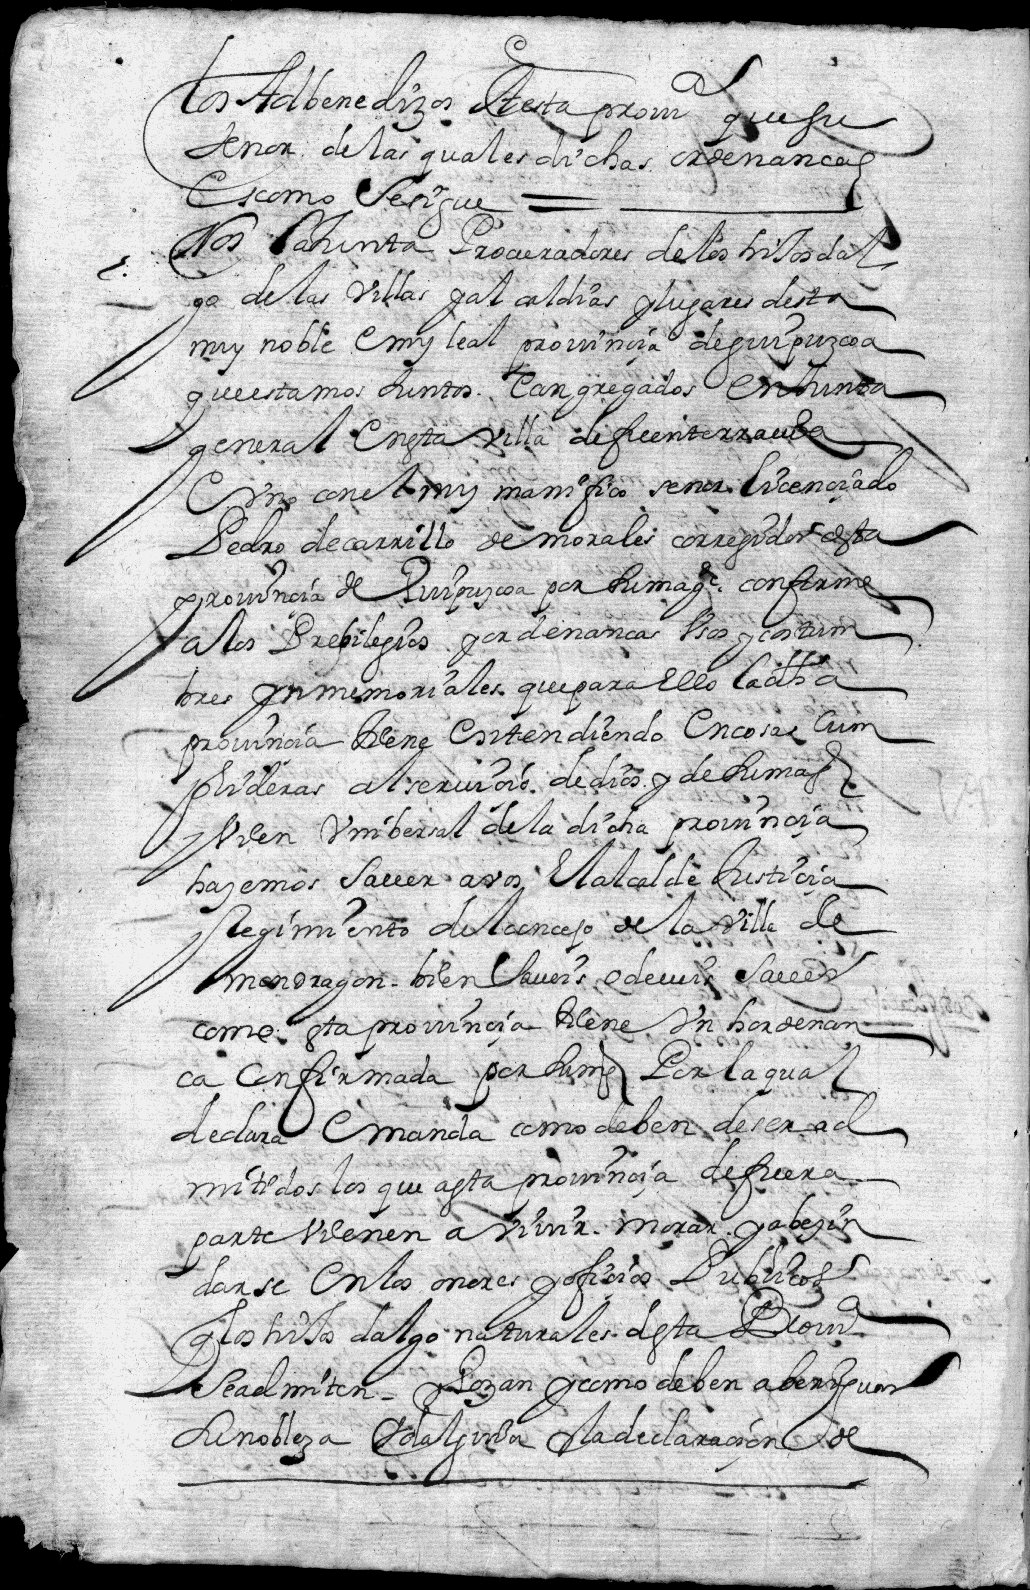 los Adbenedizos A esta prouia que su
tenor de las quales dichas ordenancas
Es como Sesigue
Nos la Junta Procuradores delos hijos dal
go de las Villas y al caldias y lugares desta
muy noble E muy leal prouinçia de guipuzcoa
que estamos Juntos. Congregados En Junta
general En esta Villa de fuenterrauia
E Uno con el muy manifico senor licençiado
Pedro de carrillo de morales corregidor desta
prouinçia de Guipuzcoa por Su magd. conforme
a los Prebilegios y ordenancas Usos y costum
bres ynmemoriales que para Ello la dha
prouinçia tiene Entendiendo En cosas Cum
plideras al seruiçio de dios y de Su magd
y bien Vnibersal de la dicha prouinçia
hazemos Sauer a vos El alcalde Justiçia
Regimiento del concejo de la Villa de
mondragon bien Saueis o deueis Sauer
como esta prouinçia tiene Vn hordenan
ca Confirmada por Su magd Por la qual
declara E manda como deben de ser ad
mitidos los que a esta prouinçia de fuera
parte Vienen a Viuir. morar y abezin
darse En los onores y ofiçios Publicos
q los hijos dalgo naturales desta Prouia
Se admiten y Gozan y como deben aberiguar
Su nobleza E ydalguia y la declaraçion de